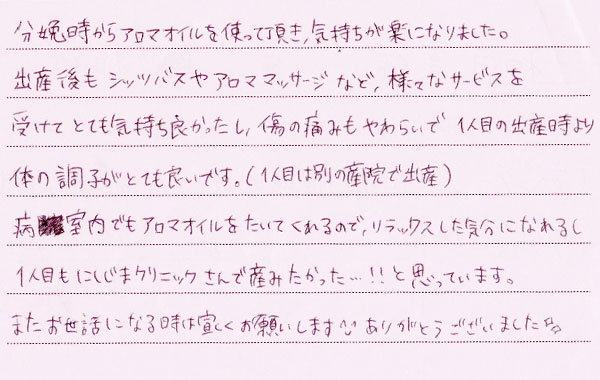 分娩時からアロマオイルを使って頂き、気持ちが楽になりました。
出産後も シッツバスやアロママッサージ など、様々なサービスを
受けて とても気持ち良かったし、傷の痛みもやわらいで 1人目の出産時より
体の調子がとても良いです。(1人目は別の産院で出産)
病室内でもアロマオイルをたいてくれるので、リラックスした気分になれるし
1人目もにしじまクリニック さんで産みたかった…!!と思っています。
またお世話になる時は宜しくお願いします ありがとうございました